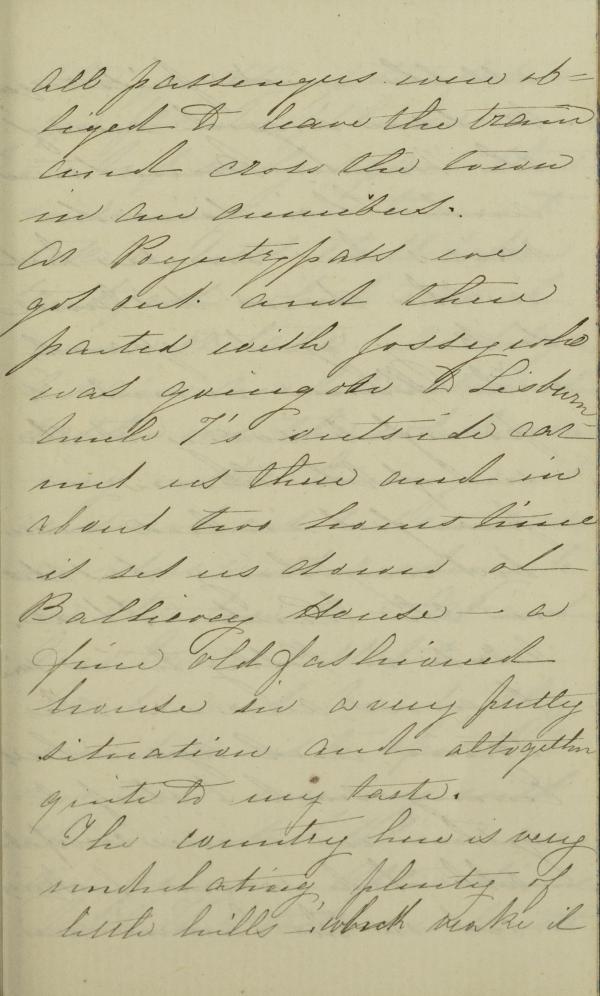 all passengers were ob=
liged to leave the train
and cross the town
in an omnibus.
At Poyntzpass we
got out and there
parted with Jossy who
was going on to Lisburn
Uncle T's outside car
met us there and in
about two hours time
it set us down at
House — a
fine old fashioned
house in a very pretty
situation and altogether
quite to my taste.
The country here is very
undulating, plenty of
little hills - which make it